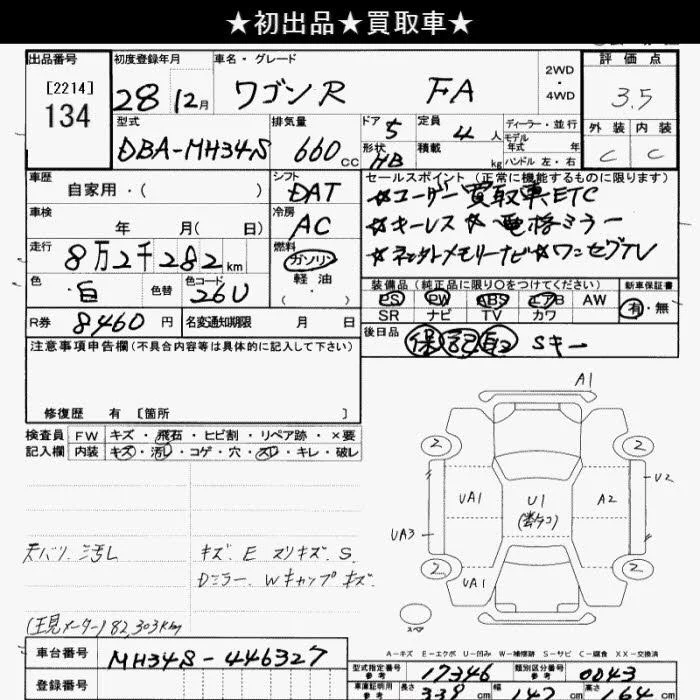 ★初出品★買取車★
出品番号 初度登録年月 車名・グレード 評価点
[2214] 134 28 12月 ワゴンR FA 2WD・4WD 3.5
型式 排気量 ドア 5 定員 4人 ディーラー・並行 外装 内装
DBA-MH34S 660cc 形状 HB 積載 kg モデル年式 年 ハンドル 左・右 C C
車歴 シフト セールスポイント(正常に機能するものに限ります)
自家用・( ) DAT ☆ユーザー買取車 ETC
車検 冷房 ☆キーレス ☆電格ミラー
年 月( 日) AC ☆ネクストメモリーナビ☆ワンセグTV
走行 燃料
8万2千282km ガソリン・軽油・( )
色 色替 色コード 装備品(純正品に限り○をつけてください) 新車保証書
白 26U PS PW ABS エアB AW 有・無
SR ナビ TV カワ
R券 8460円 名変通知期限 月 日 後日品 保 記 取 Sキー
注意事項申告欄(不具合内容等は具体的に記入して下さい)
修復歴 有 [箇所 ]
検査員 FW キズ・飛石・ヒビ割・リペア跡・×要
記入欄 内装 キズ・汚レ・コゲ・穴・スレ・キレ・破レ
A1
2 2
UA1 U1 A2 U2
UA3
2 2
UA1
スペア
天バリ 汚レ キズ. E スリキズ. S.
Dミラー. Wキャップ キズ.
(現メーター) 82,303km
A-キズ E-エクボ U-凹み W-補修跡 S-サビ C-腐食 XX-交換済
車台番号 MH34S-446327
型式指定番号 参考 17346 類別区分番号 参考 0043
登録番号
車庫証明用 参考 長さ 339cm 幅 147cm 高さ 164cm